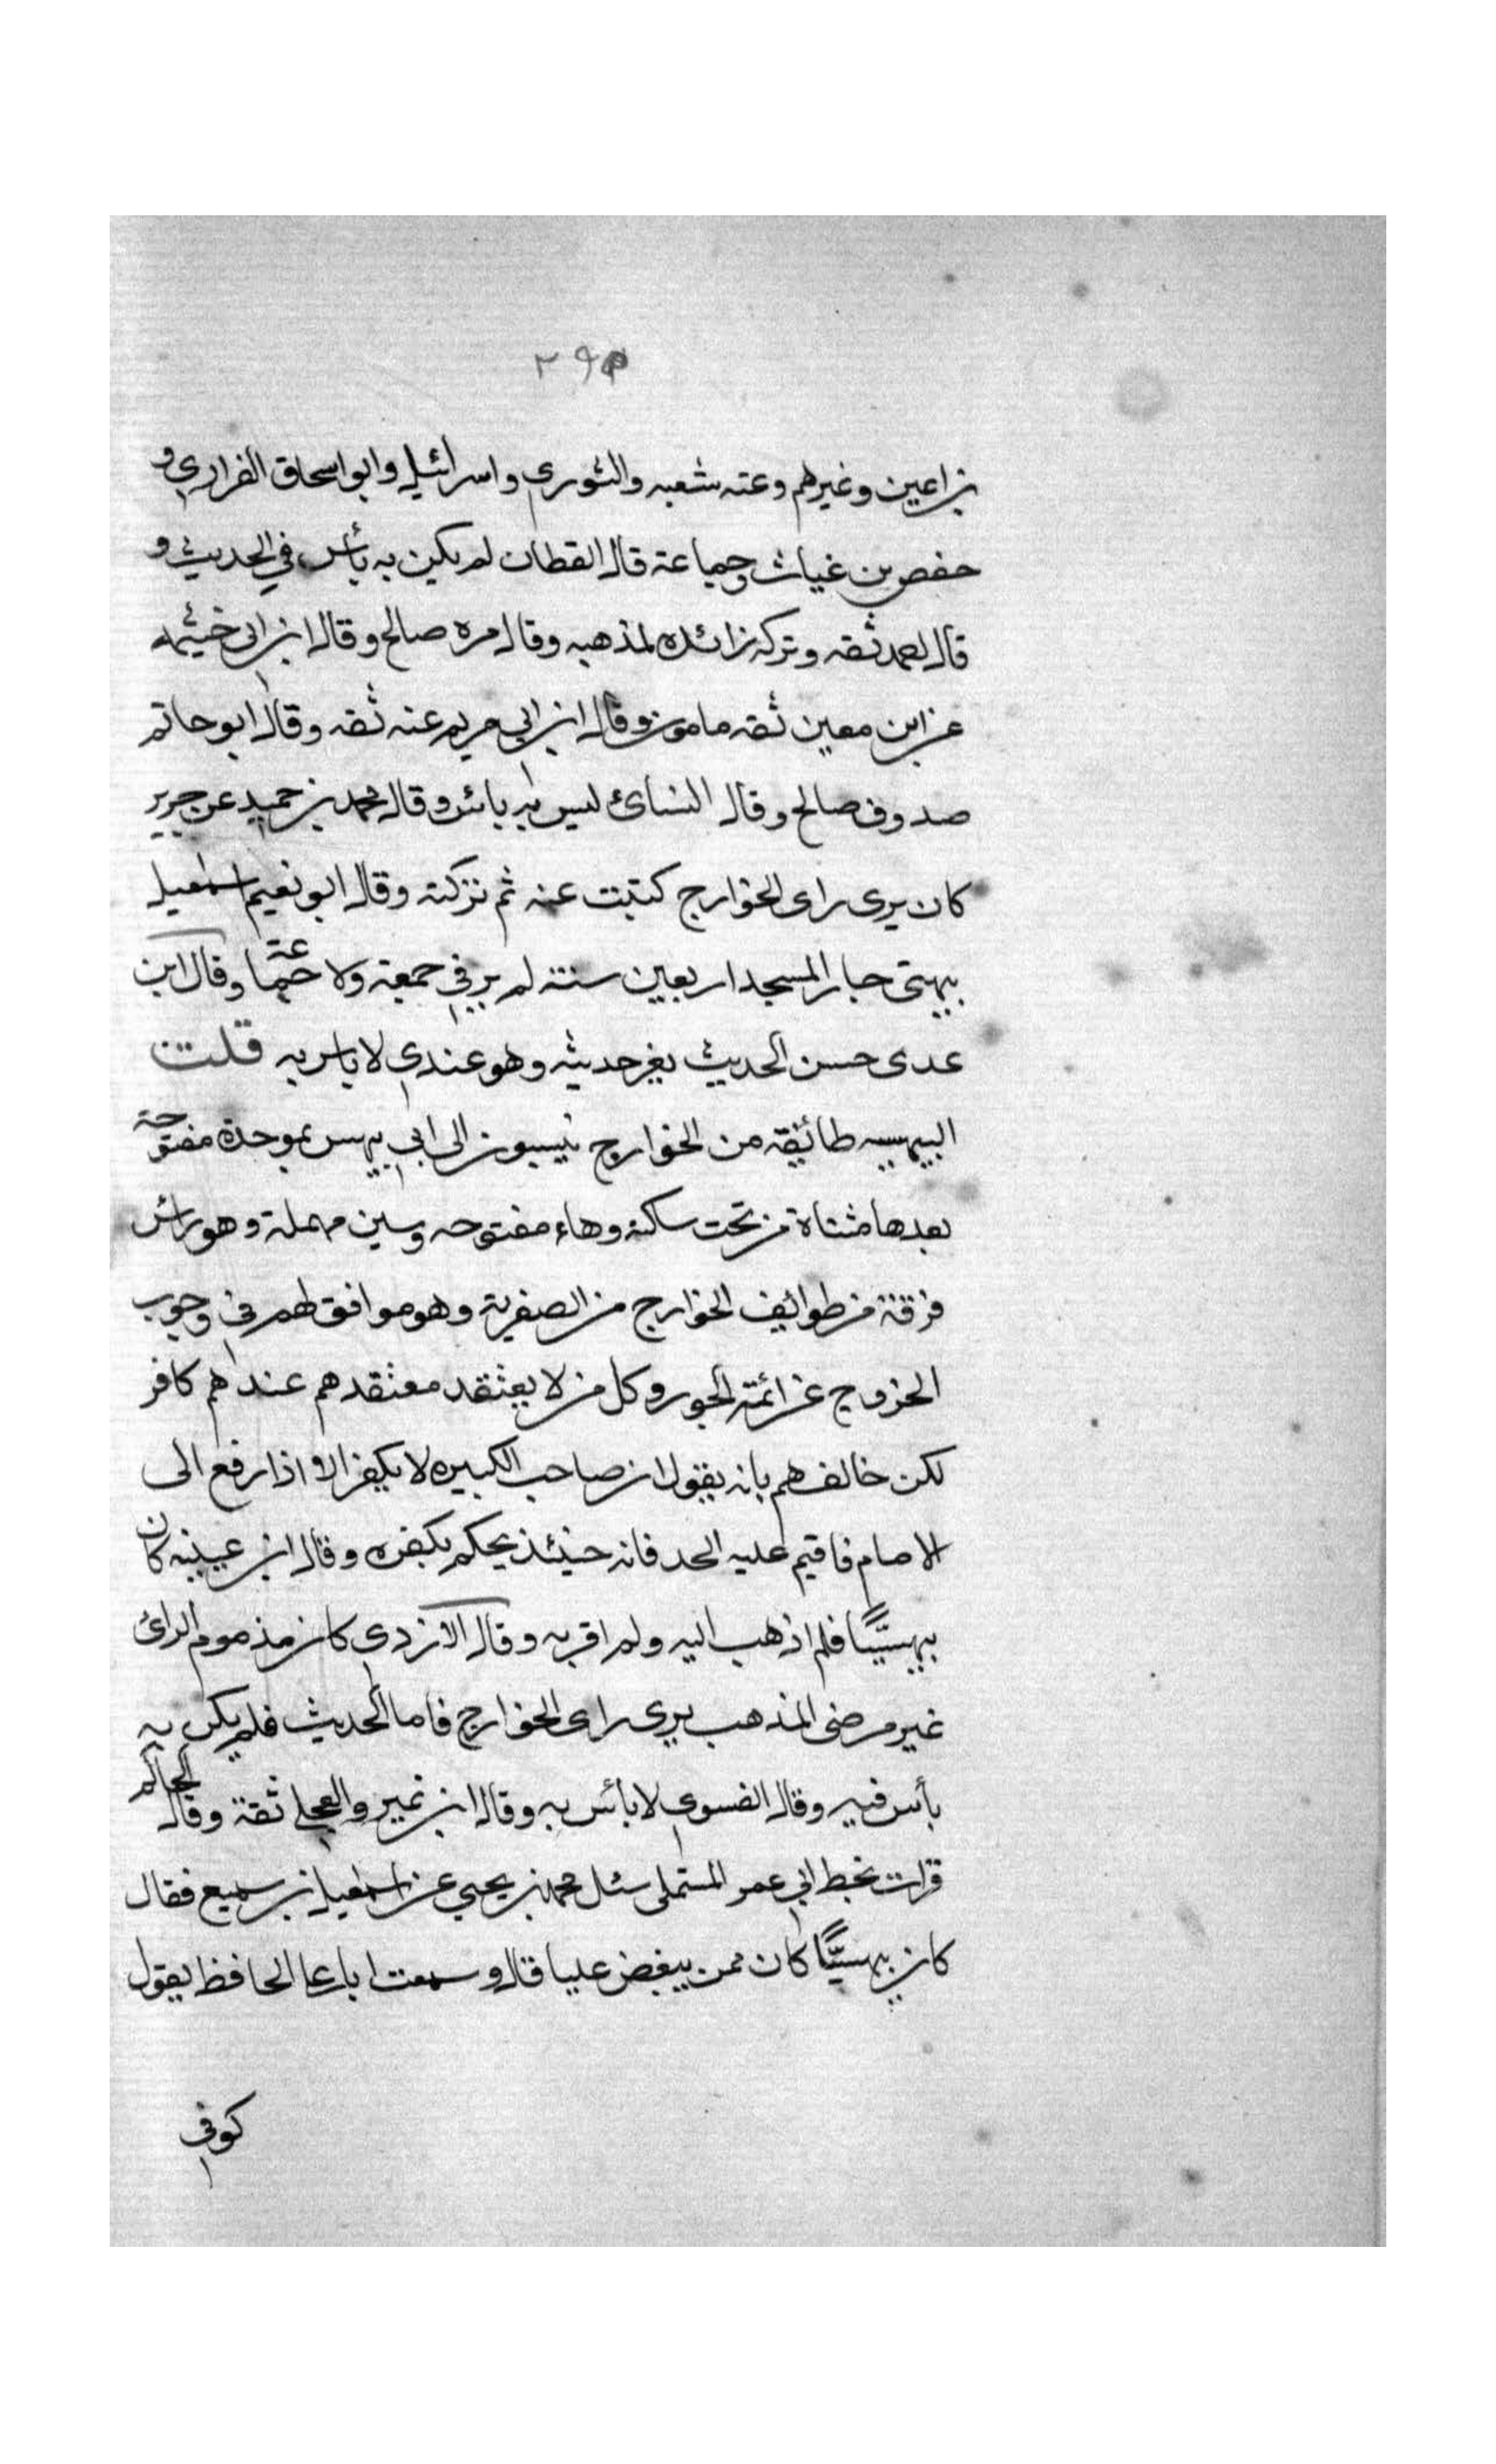 ٢٩٣
بن اعين وغيرهم وعنه شعبه والثوري واسرائيل وابو اسحاق الفزاري و
حفص بن غياث وجماعة قال القطان لم يكن به بأس في الحديث و
قال احمد ثقه وتركه زائده لمذهبه وقال مره صالح وقال ابن ابي خيثمه
عن ابن معين ثقه مامون وقال ابن ابي مريم عنه ثقه وقال ابو حاتم
صدوق صالح وقال النسائ ليس به بائس وقال محمد بن حميد عن جرير
كان يرى راى الخوارج كتبت عنه ثم تركته وقال ابو نعيم اسمعيل
بيهتى جار المسجد اربعين سنته لم ير في جمعة ولا جماعة وقال ابن
عدى حسن الحديث يغر حديثه وهو عندي لا باس به قلت
البيهسيه طائفة من الخوارج ينسبون الى ابي بيهس بموحدة مفتوحة
بعدها مثناة من تحت ساكنة وهاء مفتوحه وسين مهملة وهو رائس
فرقة من طوائف الخوارج من الصفرية وهو موافق لهم في وجوب
الخروج عن ائمة الجور وكل من لا يعتقد معتقدهم عندهم كافر
لكن خالفهم بانه يقول ان صاحب الكبيره لا يكفر الا اذا رفع الى
الامام فاقيم عليه الحد فانه حينئذ يحكم بكفره وقال ابن عيينه كان
بيهسيًّا فلم اذهب اليه ولم اقربه وقال الازدي كان مذموم الرائ
غير مرضى المذهب يرى راى الخوارج فاما الحديث فلم يكن به
بأس فيه وقال الفسوي لا بائس به وقال ابن نمير والعجلي ثقة وقال الحاكم
قرات بخط ابي عمر المستملى سئل محمد بن يحيي عن اسمعيل بن سميع فقال
كان بيهسيًّا كان ممن يبغض عليا قال وسمعت ابا رعا الحافظ يقول
كوفي